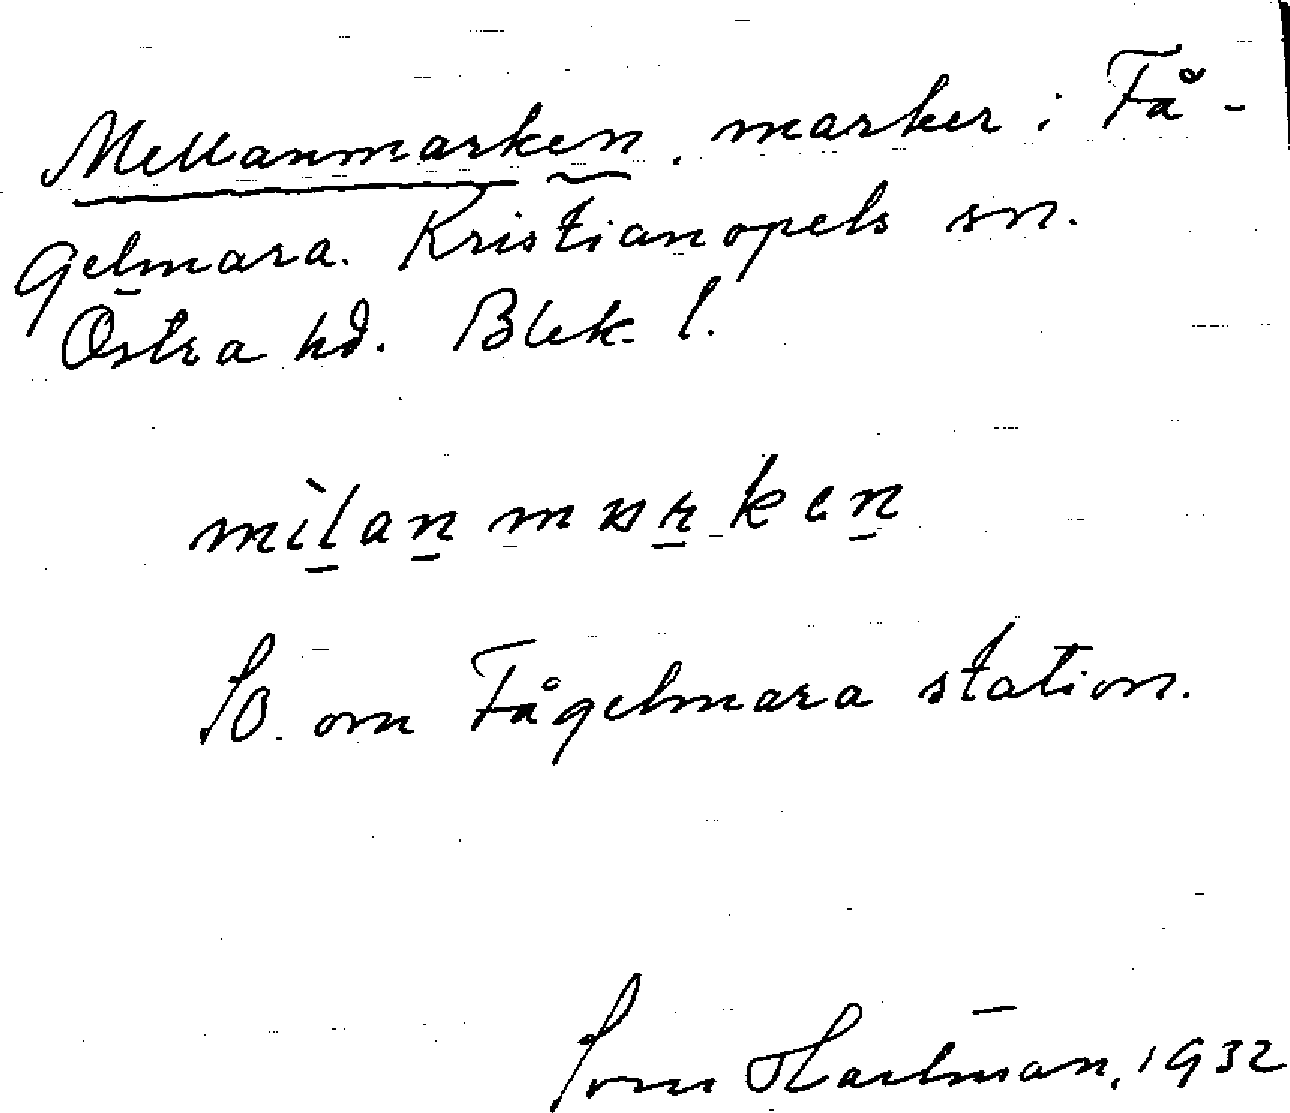 Mellanmarken, marker i Få-
gelmara. Kristianopels sn.
Östra hd. Blek. l.
SO. om Fågelmara station.
Sven Hartman, 1932